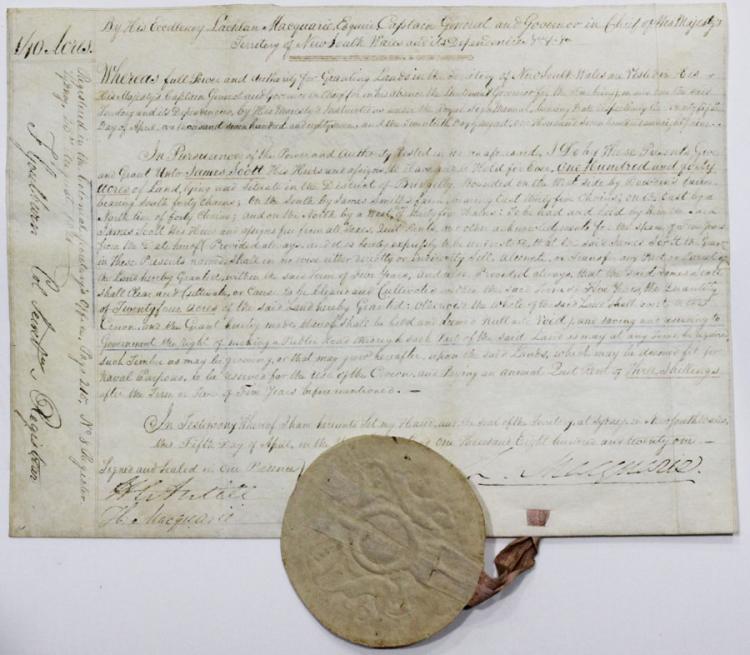 140 Acres.
By His Excellency Lachlan Macquarie, Esquire Captain General and Governor in Chief of His Majesty's
Territory of New South Wales and its Dependencies &c &c &c
Whereas full Power and Authority for Granting Lands in the Territory of New South Wales are Vested in His
His Majesty's Captain General and Governor in Chief for in his Absence the Lieutenant Governor for the time being in and over the said
Territory and its Dependencies, by His Majesty's Instructions under the Royal Sign Manual, bearing Date respectively the twenty fifth
Day of April, one thousand seven hundred and eighty seven, and the Twentieth Day of August, one thousand seven hundred and eighty nine.
In Pursuance of the Power and Authority Vested in me as aforesaid, I Do by these Presents Give
and Grant Unto James Scott His Heirs and assigns to Have and to Hold for Ever, One Hundred and forty
Acres of Land, lying and situate in the District of Bringelly. Bounded on the West side by
bearing South forty Chains; On the South by James Smith's farm bearing East thirty five Chains; on the East by a
North line of forty Chains; And on the North by a West line of thirty five Chains: To be had and held by him the said
James Scott His Heirs and assigns free from all Taxes, Quit Rents, and other acknowledgments for the Space of five years
from the Date hereof: Provided always, and it is hereby expressly to be understood, that the said James Scott the Grantee
in these Presents named, shall in no wise either directly or indirectly Sell, Alienate, or Transfer any Part or Parcel of
the Land hereby Granted, within the said term of Five Years, And also Provided always, that the said James Scott
shall Clear and Cultivate, or Cause to be Cleared and Cultivated within the said Term of Five Years, the Quantity
of Twenty four Acres of the said Land hereby Granted: Otherwise the Whole of the said Land Shall revert to the
Crown, and the Grant hereby made thereof Shall be held and deemed Null and Void; and saving and reserving to
Government the Right of making a Public Road through such Part of the said Land as may at any time be required
such Timber as may be growing, or that may grow hereafter, upon the said Lands, which may be deemed fit for
Naval Purposes, to be reserved for the Use of the Crown, and Paying an Annual Quit Rent of Three Shillings
after the Term or Time of Five Years before mentioned. —
In Testimony Whereof I have hereunto Set my Hand, and the Seal of the Territory, at Sydney, in New South Wales,
this Fifth Day of April in the One Thousand Eight hundred and twenty one —
Signed and Sealed in Our Presence
L. Macquarie.
H. C. Antill
H. Macquarie
Registered in the Colonial Secretary's Office, Page 215 No 8 Register
F Goulburn Col Secretary Registrar